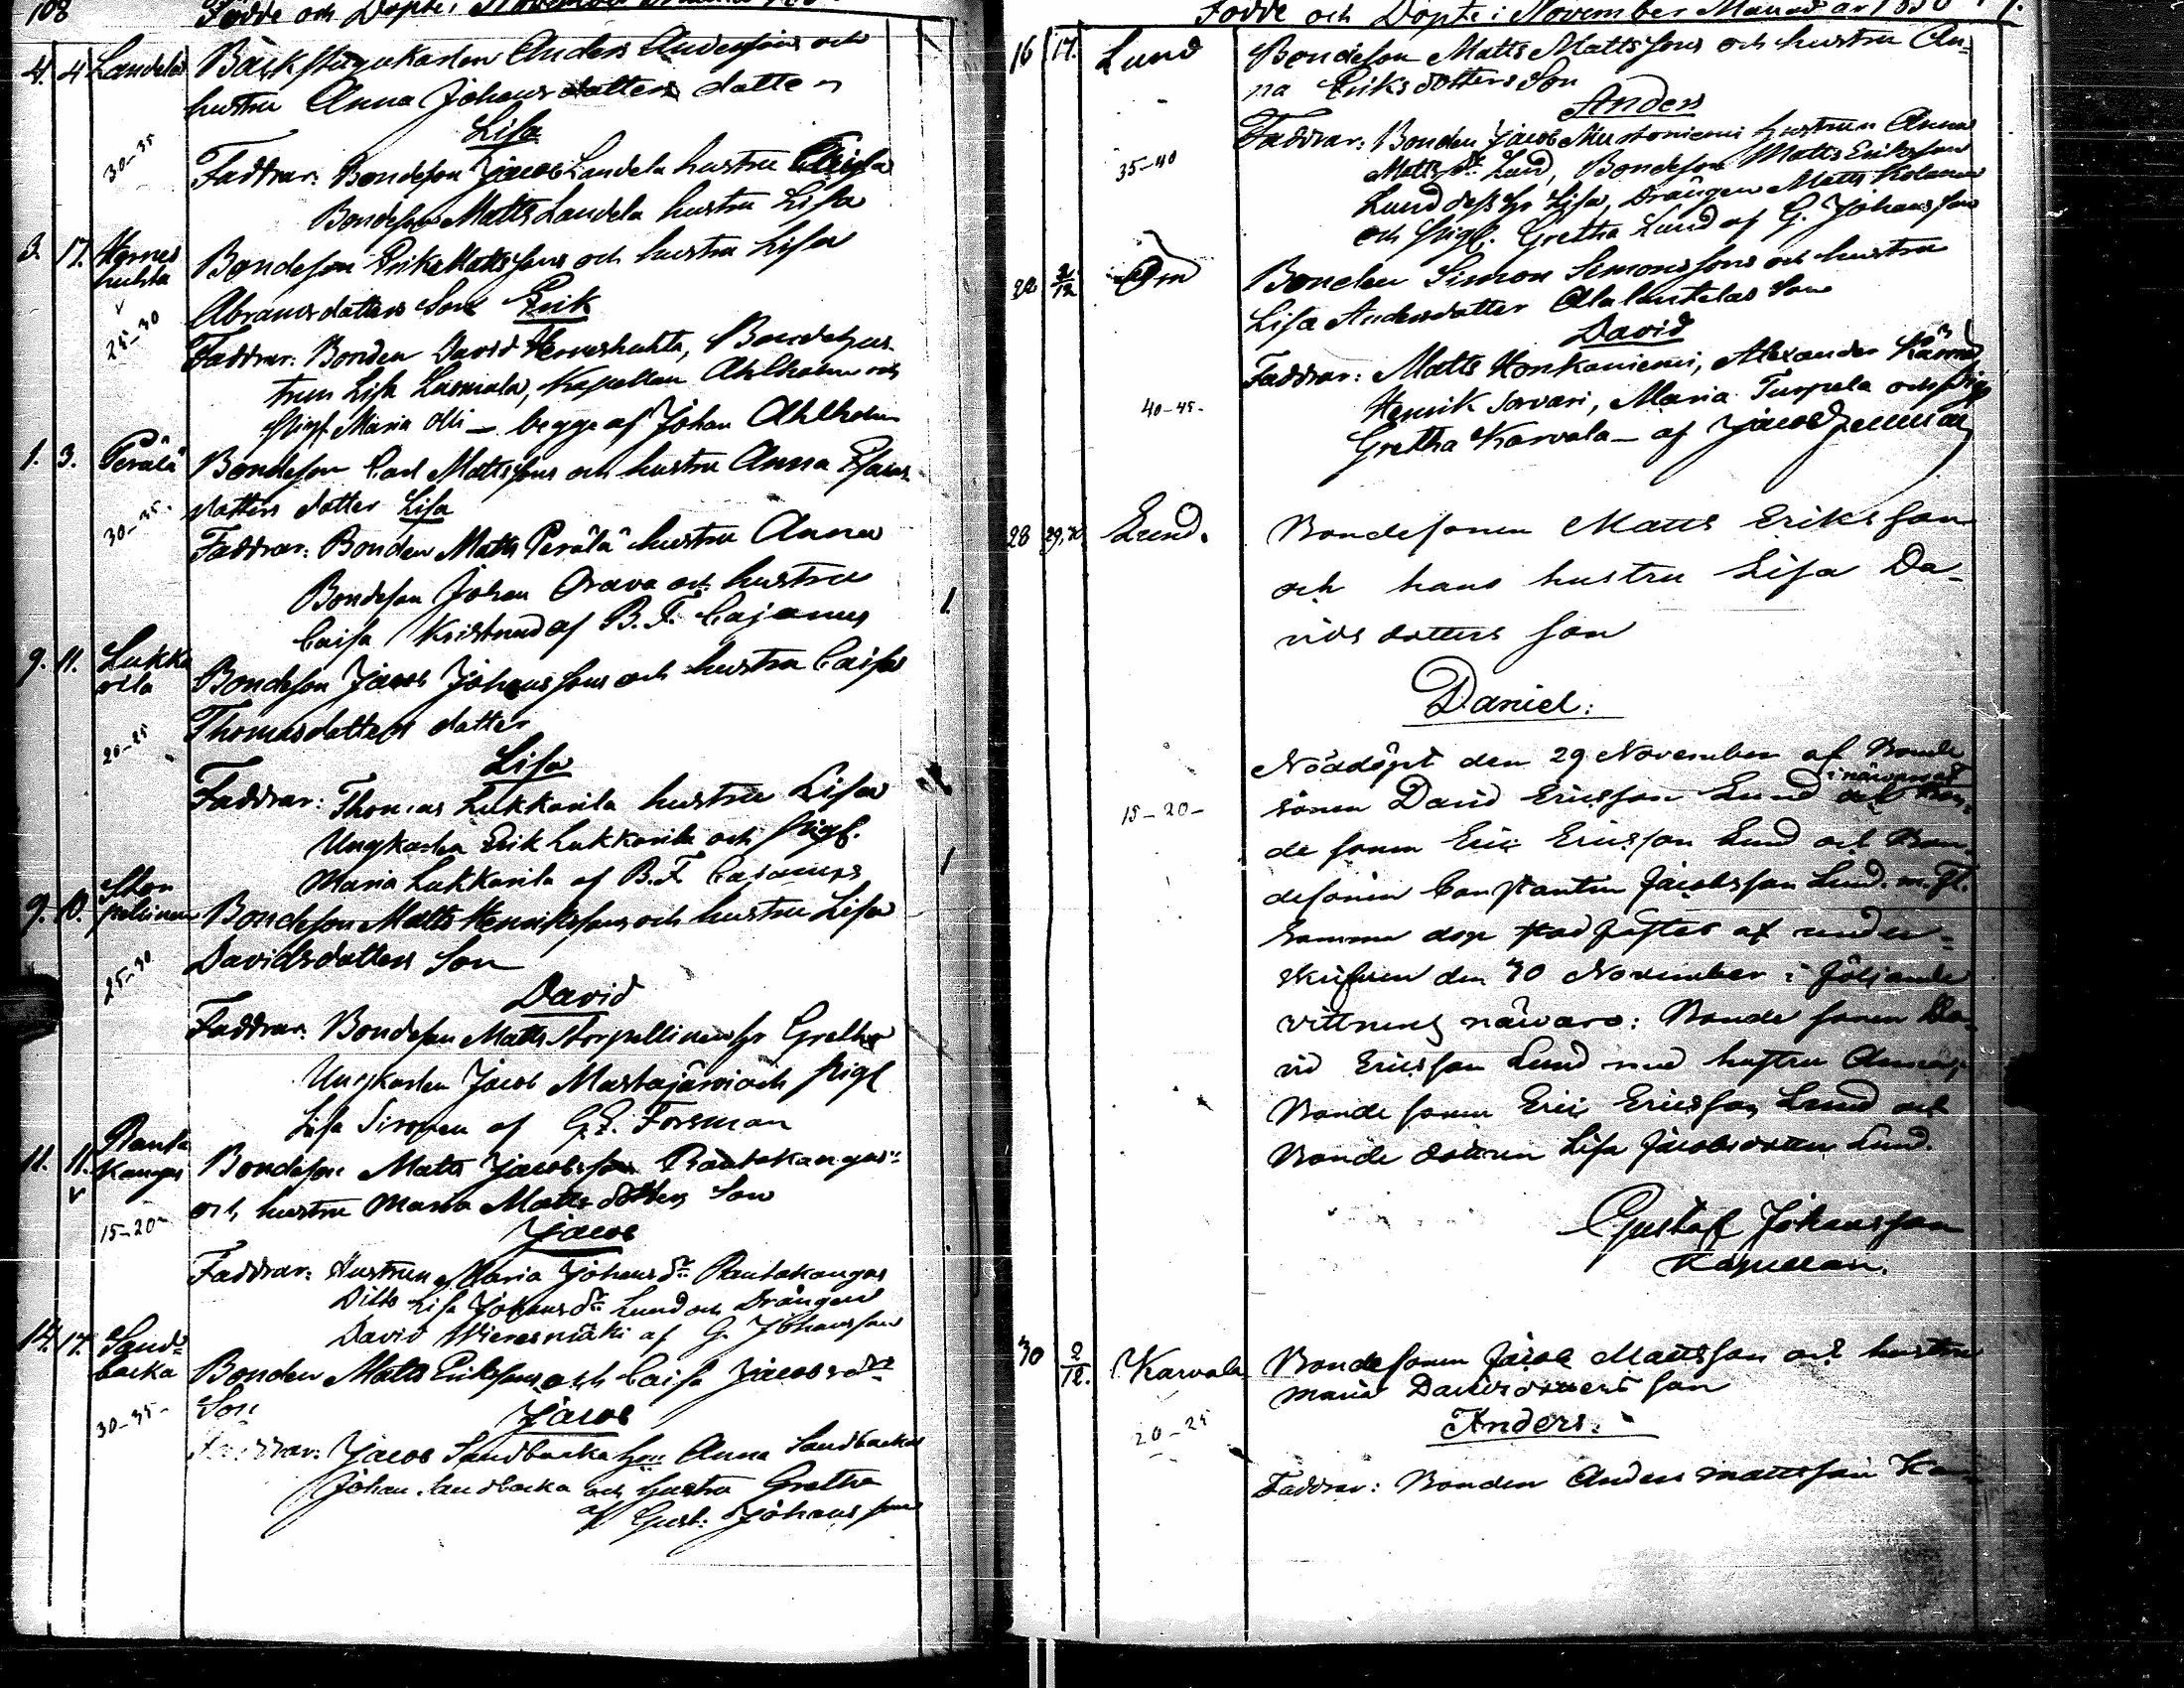 108
Födde och Döpte i November
4. 4 Landela Backstugukarlen Anders Anderssons och
hustru Anna Johansdotters dotter
Lisa
30-35
Faddrar: Bondeson Jacob Landela hustru Caisa
Bondeson Matts Landela hustru Lisa
3. 17. Hernes Bondeson Erik Mattssons och hustru Lisa
huhta
Abramsdotters Son Erik
25-30
Faddrar: Bonden David Herneshuhta, Bondehus-
trun Lisa Lasmala, Kapellan Ahlholm och
Pigf. Maria Olli - begge af Johan Ahlholm
1. 3. Perälä Bondeson Carl Mattssons och hustru Anna Esaias-
dotters dotter Lisa
30-35.
Faddrar: Bonden Matts Perälä hustru Anna
Bondeson Johan Orava och hustru
Caisa Kristnad af B. F. Cajanus
9. 11. Lukka Bondeson Jacob Johanssons och hustru Caisa
rila
Thomasdotters dotter
20-25
Lisa
Faddrar: Thomas Lukkarila hustru Lisa
Ungkarlen Erik Lukkarila och Pigf.
Maria Lukkarila af B. F. Cajanus
9. 10. Stor
pelinen Bondeson Matts Henrikssons och hustru Lisa
Davidsdotters Son
25-30
David
Faddrar: Bondeson Matts Storpellinen hr Gretha
Ungkarlen Jacob Mustajärvi och Pigf
Lisa Sironen af G. E. Forsman
11. 11. Ranta
kangas Bondeson Matts Jacobsson Rantakangas
och hustru Maria Mattsdotters Son
15-20
Jacob
Faddrar: Hustrun Maria Johansdr Rantakangas
Ditto Lisa Johansdr Lund och Drängen
David Wieresmäki af G. Johansson
14. 17. Sand-
backa Bonden Matts Erikssons och Caisa Jacobsdrs
Son
30-35-
Jacob
Faddrar: Jacob Sandbacka Anna Sandbacka
Johan Sandbacka och hustru Gretha
af Gust: Johansson
Födde och Döpte i November Månad år
16 17. Lund Bondeson Matts Mattssons och hustru An-
na Eriksdotters Son
Anders
Faddrar: Bonden Jacob Mustoniemi hustrun Anna
35-40
Matts dr Lund, Bondeson Matts Eriksson
Lund dess hr Lisa, Drängen Matts
och Pigf. Gretha Lund af G. Johansson
22 2/12 Om Bonden Simon Simonssons och hustru
Lisa Andersdotter Alalantelas Son
David
Faddrar: Matts Honkaniemi, Alexander
Henrik Sorvari, Maria Turpela och Pigf
40-45-
Gretha Karvala - af Jacob
28 29,30 Lund. Bondesonen Matts Eriksson
och hans hustru Lisa Da-
vidsdotters son
Daniel:
Nöddöpt den 29 November af Bonde
i närvaro af
sonen David Ericsson Lund Bon-
15-20-
de sonen Eric Ericsson Lund och Bon-
desonen Constantin Jacobsson Lund. m. fl.
Samma dop stadfästes af under-
skrifven den 30 November i följande
vittnens närvaro: Bonde sonen Da-
vid Ericsson Lund med hustru
Bonde sonen Eric Ericsson Lund och
Bonde dottren Lisa Jacobsdotter Lund.
Gustaf Johansson
Kapellan.
30 2/12. Karvala Bondesonen Jacob Mattsson och hustru
Maria Davidsdotters son
Anders.
20-25
Faddrar: Bonden Anders Mattsson Kar-